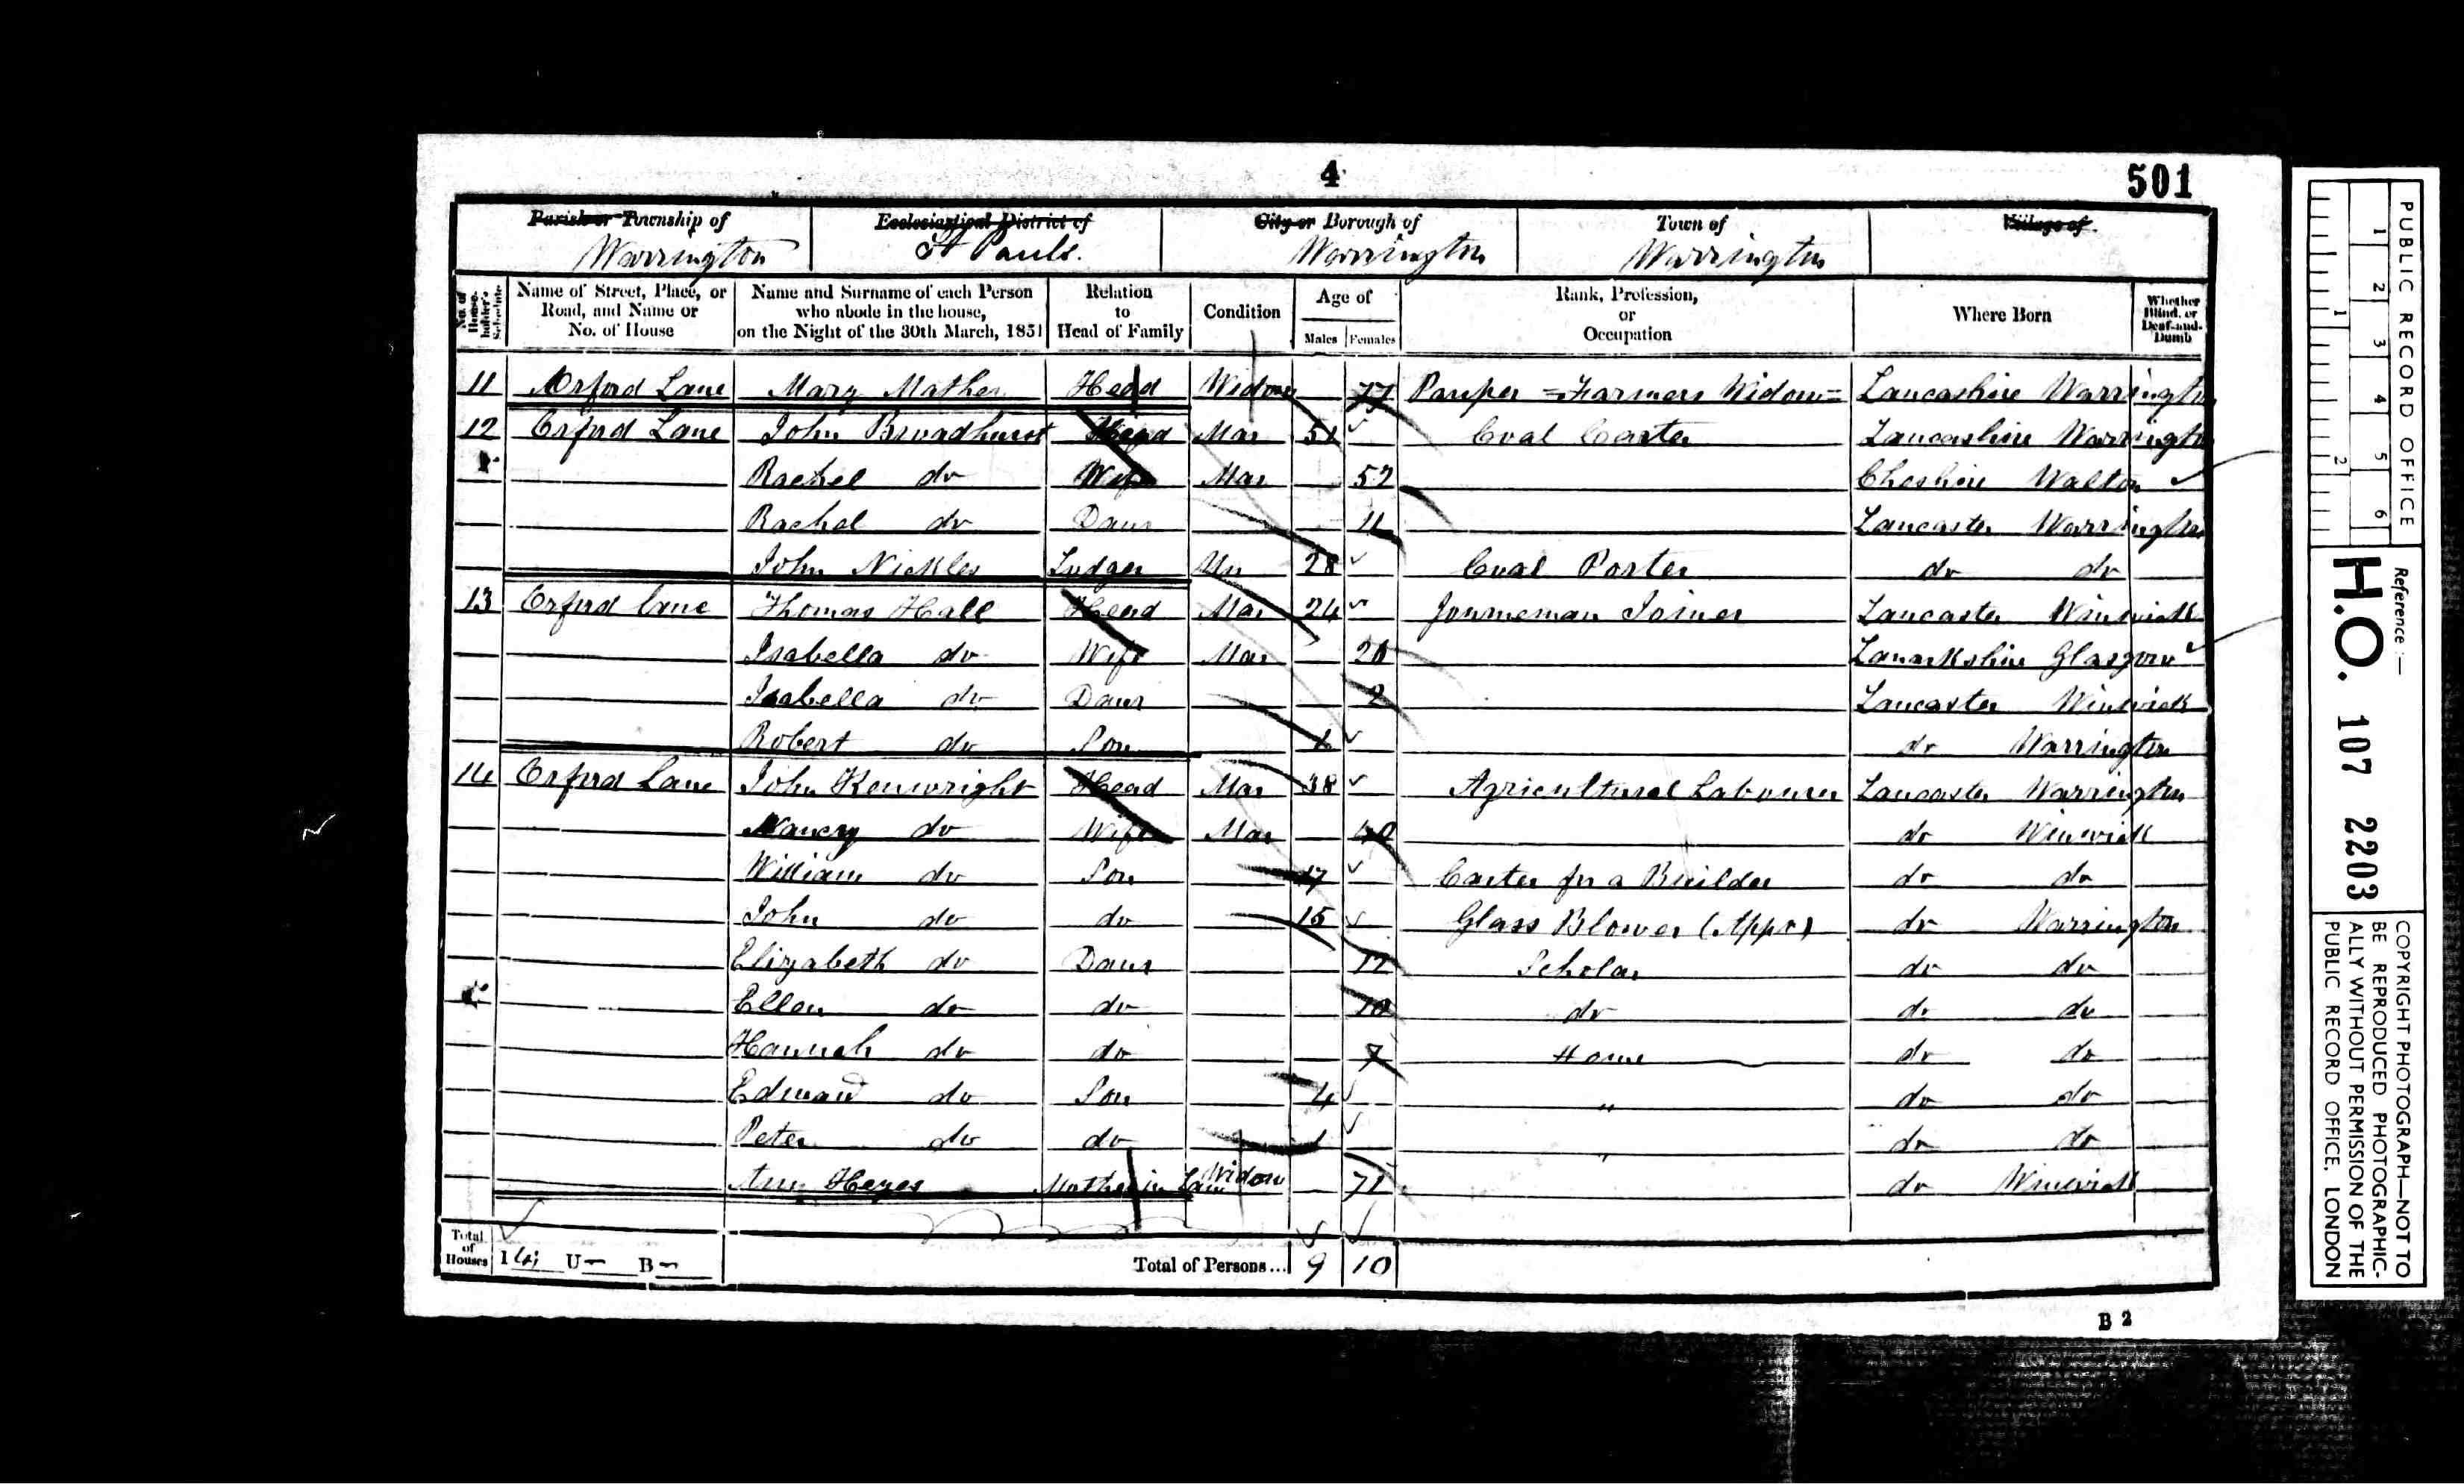 4
501
Parish or Township of
Warrington
Ecclesiastical District of
St Pauls.
City or Borough of
Warrington
Town of
Warrington
Village of
No. of House-holder's Schedule
Name of Street, Place, or Road, and Name or No. of House
Name and Surname of each Person who abode in the house, on the Night of the 30th March, 1851
Relation to Head of Family
Condition
Age of
Males Females
Rank, Profession, or Occupation
Where Born
Whether Blind, or Deaf-and-Dumb
11 Orford Lane Mary Mather Head Widow 77 Pauper =Farmers Widow= Lancashire Warrington
12 Orford Lane John Broadhurst Head Mar 51 Coal Carter Lancashire Warrington
Rachel do Wife Mar 52 Cheshire Walton
Rachel do Daur 11 Lancaster Warrington
John Nickles Lodger Un 28 Coal Porter do do
13 Orford Lane Thomas Hall Head Mar 24 Journeman Joiner Lancaster Winwick
Isabella do Wife Mar Lanarkshire Glasgow
Isabella do Daur 2 Lancaster Winwick
Robert do Son do Warrington
14 Orford Lane John Kenwright Head Mar 38 Agricultural Labourer Lancaster Warrington
Nancy do Wife Mar 40 do Winwick
William do Son 17 Carter for a Builder do do
John do do 15 Glass Blower (Appr) do Warrington
Elizabeth do Daur 12 Scholar do do
Ellen do do 10 do do do
Hannah do do 7 Home do do
Edward do Son 4 " do do
Peter do do 1 " do do
Ann Heyes Mother in Law Widow 71 do Winwick
Total of Houses I 4 U — B — Total of Persons... 9 10
B 2
PUBLIC RECORD OFFICE
1 2 3 4 5 6
1 2
Reference :—
H.O. 107 2203
COPYRIGHT PHOTOGRAPH—NOT TO
BE REPRODUCED PHOTOGRAPHIC-
ALLY WITHOUT PERMISSION OF THE
PUBLIC RECORD OFFICE, LONDON